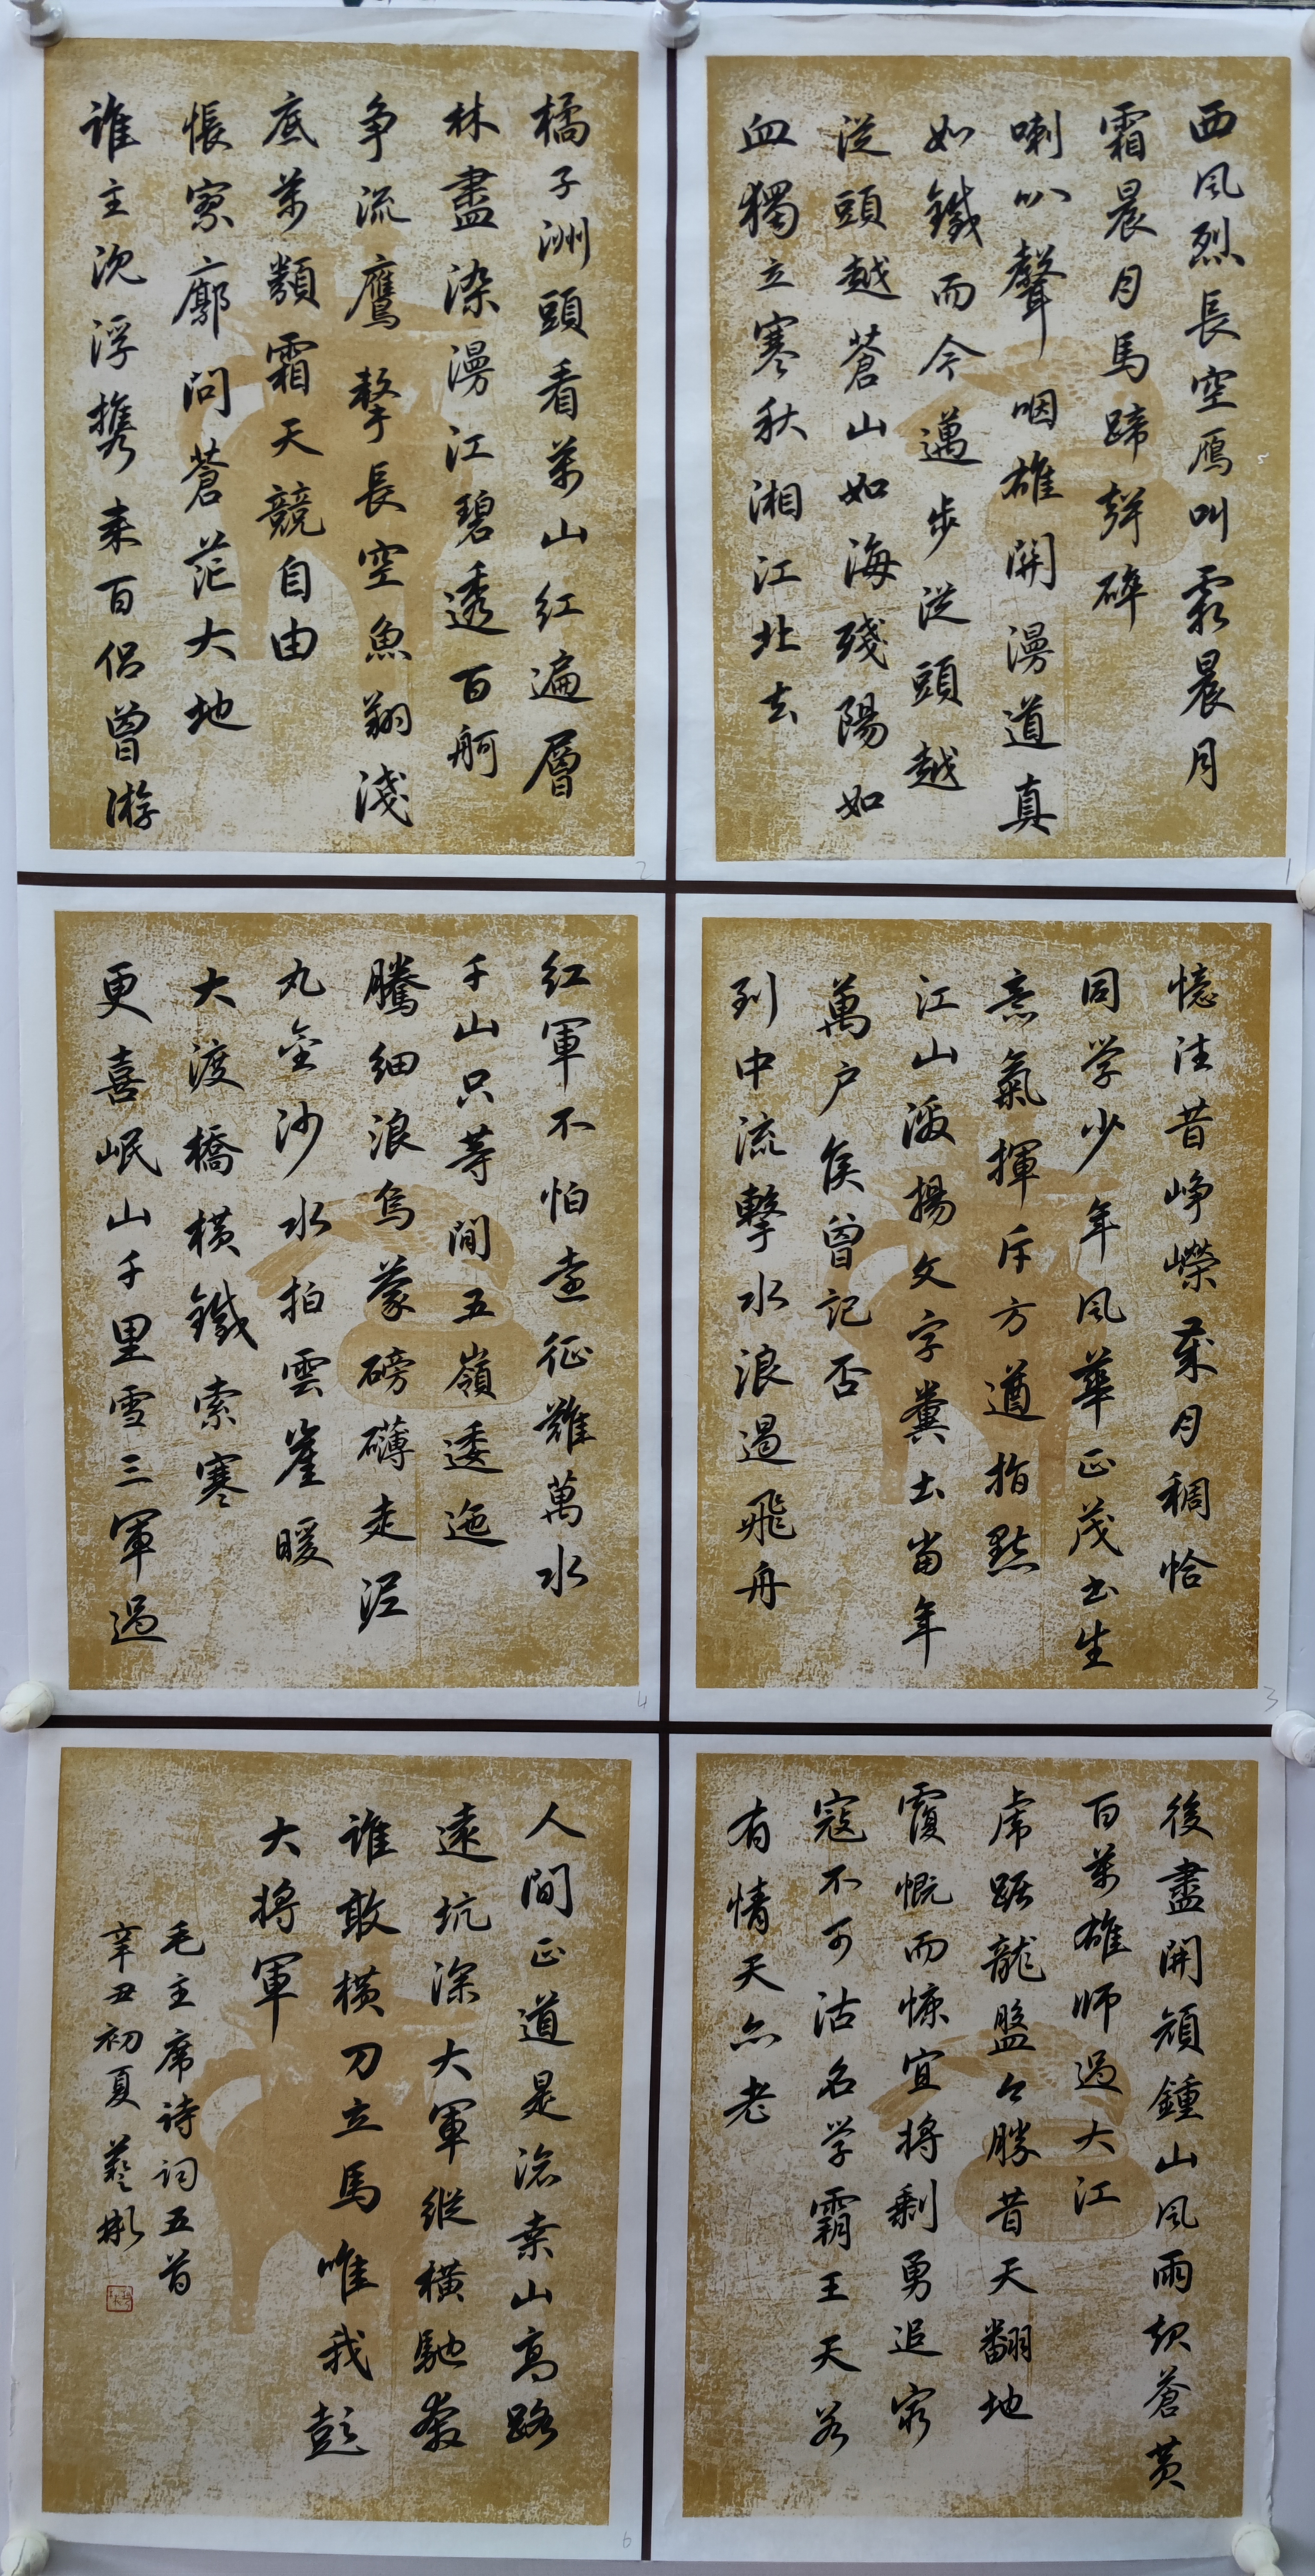 西風烈長空雁叫霜晨月
霜晨月馬蹄聲碎
喇叭聲咽雄關漫道真
如鐵而今邁步從頭越
從頭越蒼山如海殘陽如
血獨立寒秋湘江北去
1
橘子洲頭看萬山紅遍層
林盡染漫江碧透百舸
爭流鷹擊長空魚翔淺
底萬類霜天競自由
悵寥廓問蒼茫大地
誰主沈浮攜來百侶曾游
2
憶往昔崢嶸歲月稠恰
同学少年風華正茂書生
意氣揮斥方遒指點
江山激揚文字糞土當年
萬戶侯曾記否
到中流擊水浪遏飛舟
3
紅軍不怕遠征難萬水
千山只等間五嶺逶迤
騰細浪烏蒙磅礴走泥
丸金沙水拍雲崖暖
大渡橋橫鐵索寒
更喜岷山千里雪三軍過
4
後盡開顏鍾山風雨起蒼黃
百萬雄師過大江
虎踞龍盤今勝昔天翻地
覆慨而慷宜將剩勇追窮
寇不可沽名学霸王天若
有情天亦老
人間正道是滄桑山高路
遠坑深大軍縱橫馳奔
誰敢橫刀立馬唯我彭
大將軍
毛主席詩詞五首
辛丑初夏 藝彬
6